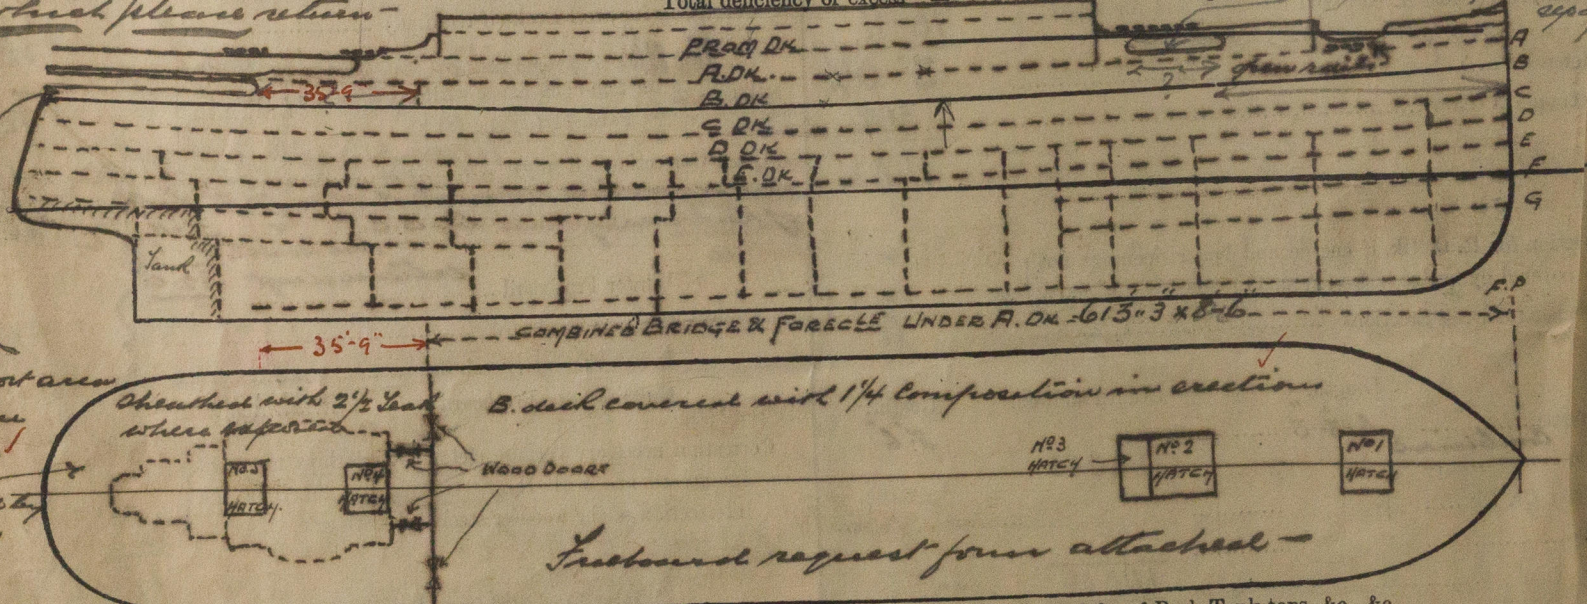 which please return-
Total deficiency of
PROM DK.
A. DK.
B. DK
C DK
D DK
E. DK
A
B
C
D
E
F
G
open rails
?
35'-9"
Tank
F.P
COMBINED BRIDGE & FORECLE UNDER A. DK = 613'-3 x 8'-6"
35'-9"
Sheathed with 2 1/2 Teak
where exposed
B. deck covered with 1 1/4 Composition in erections
WOOD DOORS
No 5
HATCH.
No 4
HATCH
No 3
HATCH
No 2
HATCH
No 1
HATCH
Freeboard request form attached -